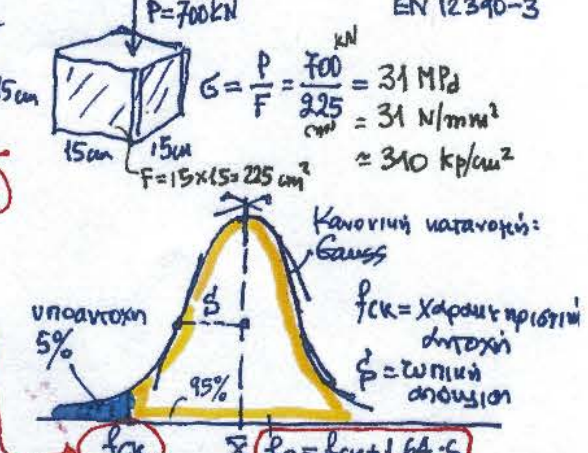 P=700KN
EN 12390-3
15cm
15cm
F=15×15=225 cm²
σ = P/F = 700 KN / 225 cm² = 31 MPa
= 31 N/mm²
≈ 310 kp/cm²
Κανονική κατανομή:
Gauss
υποαντοχη
5%
S
95%
fck = χαρακτηριστική
αντοχή
S = τυπική
απόκλιση
fck
x̄